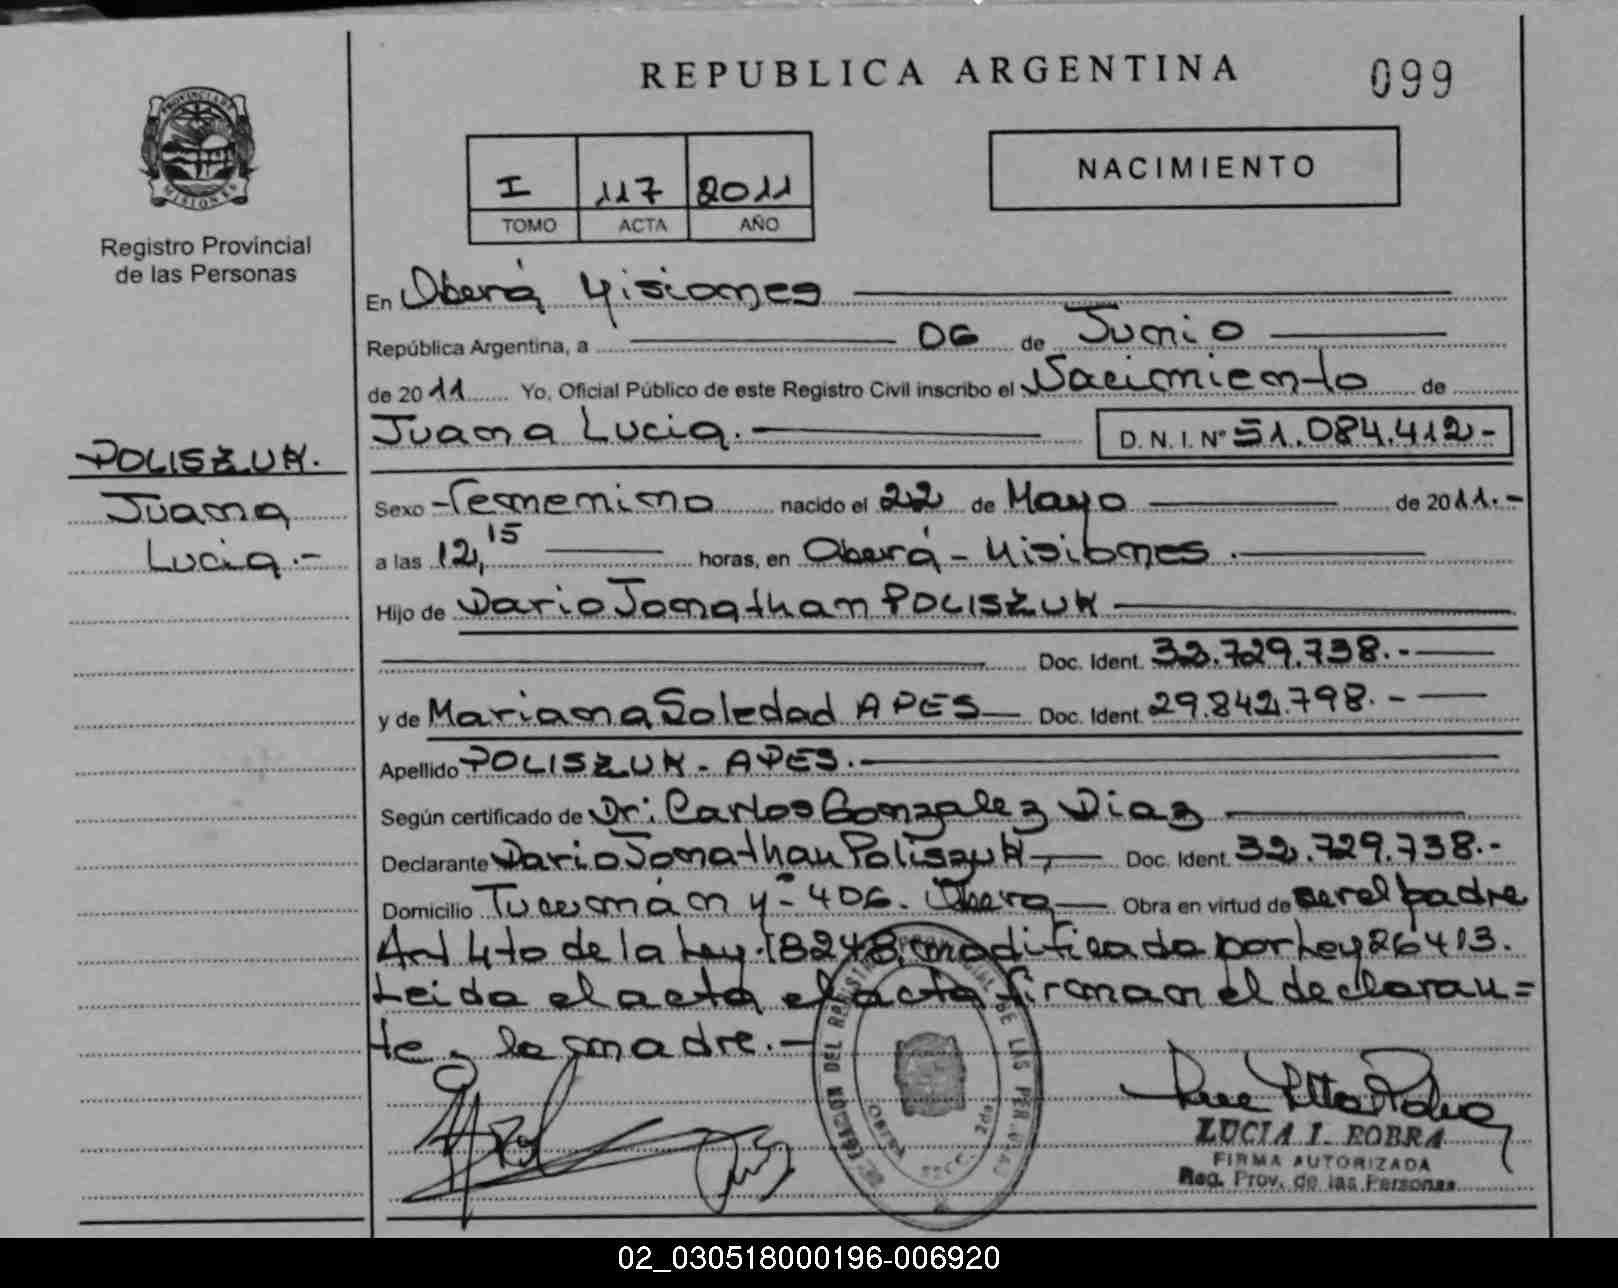 REPUBLICA ARGENTINA
099
PROVINCIA DE
MISIONES
Registro Provincial
de las Personas
I 117 2011
TOMO ACTA AÑO
NACIMIENTO
En Oberá Misiones
República Argentina, a 06 de Junio
de 2011 Yo, Oficial Público de este Registro Civil inscribo el Nacimiento de
Juana Lucia. D. N. I. Nº 51.084.412-
POLISZUK.
Juana
Lucia.-
Sexo Femenino nacido el 22 de Mayo de 2011.-
a las 12,15 horas, en Oberá - Misiones.
Hijo de Dario Jonathan POLISZUK
Doc. Ident. 32.729.738.-
y de Mariana Soledad APES Doc. Ident. 29.842.798.-
Apellido POLISZUK - APES.
Según certificado de Dr: Carlos Gonzalez Diaz
Declarante Dario Jonathan Poliszuk, Doc. Ident. 32.729.738.-
Domicilio Tucumán Nº 406. Oberá Obra en virtud de ser el padre
Art 4to de la Ley 18248, modificada por Ley 26413.
Leida el acta el acta firman el declaran=
te y la madre.-
DEL REGISTRO PROVINCIAL DE LAS PERSONAS
LUCIA I. ROBRA
FIRMA AUTORIZADA
Reg. Prov. de las Personas
02_030518000196-006920